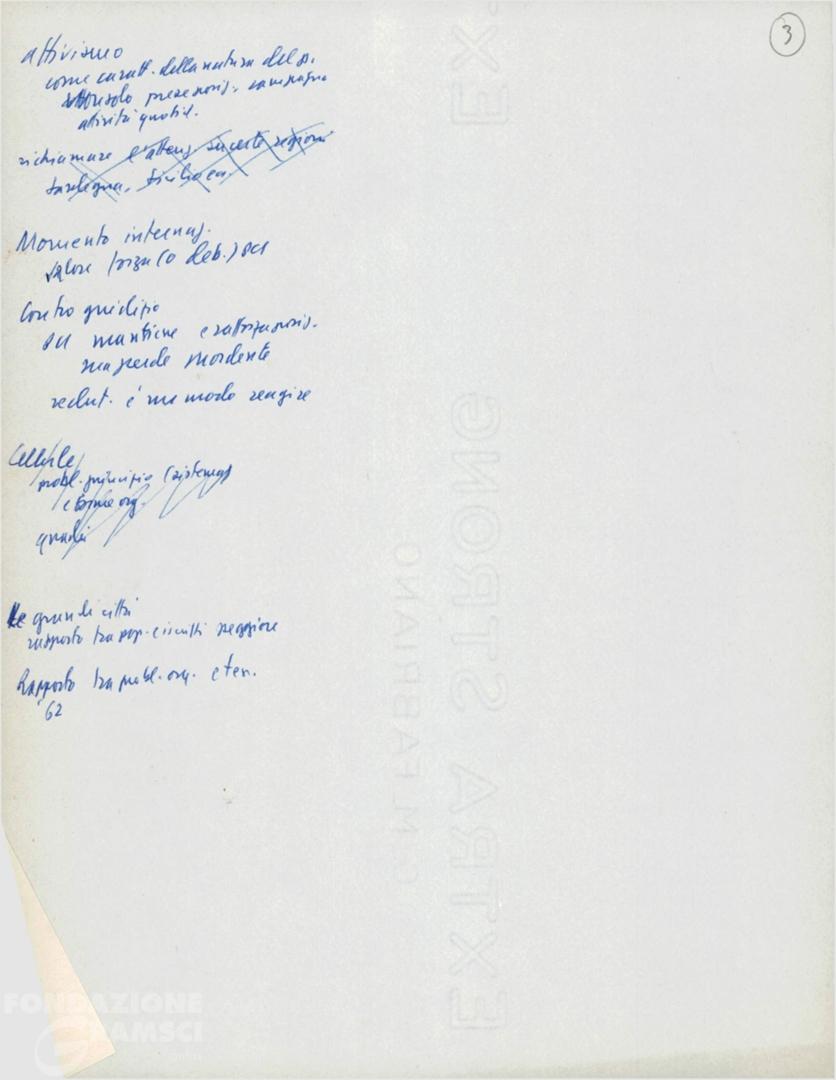 3
attivismo
come caratt. della natura del p.
non solo precong. campagna
attività quotid.
richiamare l'attenz. su certe regioni
Sardegna, Sicilia ecc.
Momento internaz.
valore forza (o deb.) PCI
Contro giudizio
PCI mantiene e rafforza posiz.
ma perde mordente
reclut. è un modo reagire
Cellule
probl. principio (sistema)
e forme org.
quadri
Le grandi città
rapporto tra pop. e iscritti peggiore
Rapporto tra probl. org. e ter.
'62
EXTRA STRONG
G. M. FABRIANO
EX
FONDAZIONE
GRAMSCI